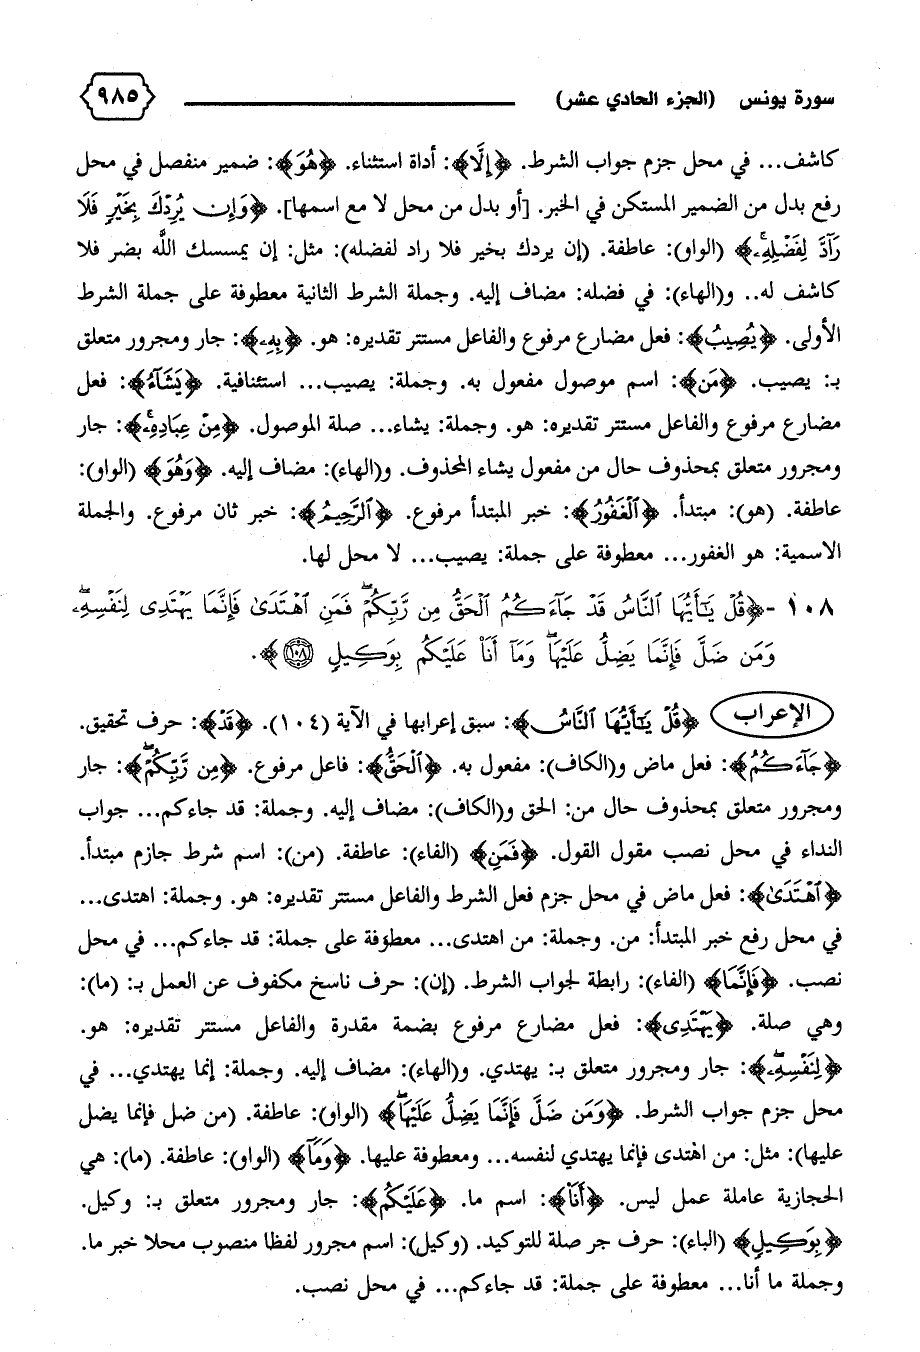 سورة يونس (الجزء الحادي عشر) ٩٨٥
كاشف... في محل جزم جواب الشرط. ﴿إِلَّا﴾: أداة استثناء. ﴿هُوَ﴾: ضمير منفصل في محل
رفع بدل من الضمير المستكن في الخبر. [أو بدل من محل لا مع اسمها]. ﴿وَإِن يُرِدْكَ بِخَيْرٍ فَلَا
رَآدَّ لِفَضْلِهِۦ﴾ (الواو): عاطفة. (إن يردك بخير فلا راد لفضله): مثل: إن يمسسك اللَّه بضر فلا
كاشف له.. و(الهاء): في فضله: مضاف إليه. وجملة الشرط الثانية معطوفة على جملة الشرط
الأولى. ﴿يُصِيبُ﴾: فعل مضارع مرفوع والفاعل مستتر تقديره: هو. ﴿بِهِۦ﴾: جار ومجرور متعلق
بـ: يصيب. ﴿مَن﴾: اسم موصول مفعول به. وجملة: يصيب... استئنافية. ﴿يَشَآءُ﴾: فعل
مضارع مرفوع والفاعل مستتر تقديره: هو. وجملة: يشاء... صلة الموصول. ﴿مِنْ عِبَادِهِۦ﴾: جار
ومجرور متعلق بمحذوف حال من مفعول يشاء المحذوف. و(الهاء): مضاف إليه. ﴿وَهُوَ﴾ (الواو):
عاطفة. (هو): مبتدأ. ﴿ٱلْغَفُورُ﴾: خبر المبتدأ مرفوع. ﴿ٱلرَّحِيمُ﴾: خبر ثان مرفوع. والجملة
الاسمية: هو الغفور... معطوفة على جملة: يصيب... لا محل لها.
١٠٨ -﴿قُلْ يَٰٓأَيُّهَا ٱلنَّاسُ قَدْ جَآءَكُمُ ٱلْحَقُّ مِن رَّبِّكُمْۖ فَمَنِ ٱهْتَدَىٰ فَإِنَّمَا يَهْتَدِى لِنَفْسِهِۦۖ
وَمَن ضَلَّ فَإِنَّمَا يَضِلُّ عَلَيْهَاۖ وَمَآ أَنَا۠ عَلَيْكُم بِوَكِيلٍ ١٠٨﴾.
الإعراب ﴿قُلْ يَٰٓأَيُّهَا ٱلنَّاسُ﴾: سبق إعرابها في الآية (١٠٤). ﴿قَدْ﴾: حرف تحقيق.
﴿جَآءَكُمُ﴾: فعل ماض و(الكاف): مفعول به. ﴿ٱلْحَقُّ﴾: فاعل مرفوع. ﴿مِن رَّبِّكُمْۖ﴾: جار
ومجرور متعلق بمحذوف حال من: الحق و(الكاف): مضاف إليه. وجملة: قد جاءكم... جواب
النداء في محل نصب مقول القول. ﴿فَمَنِ﴾ (الفاء): عاطفة. (من): اسم شرط جازم مبتدأ.
﴿ٱهْتَدَىٰ﴾: فعل ماض في محل جزم فعل الشرط والفاعل مستتر تقديره: هو. وجملة: اهتدى...
في محل رفع خبر المبتدأ: من. وجملة: من اهتدى... معطوفة على جملة: قد جاءكم... في محل
نصب. ﴿فَإِنَّمَا﴾ (الفاء): رابطة لجواب الشرط. (إن): حرف ناسخ مكفوف عن العمل بـ: (ما):
وهي صلة. ﴿يَهْتَدِى﴾: فعل مضارع مرفوع بضمة مقدرة والفاعل مستتر تقديره: هو.
﴿لِنَفْسِهِۦۖ﴾: جار ومجرور متعلق بـ: يهتدي. و(الهاء): مضاف إليه. وجملة: إنما يهتدي... في
محل جزم جواب الشرط. ﴿وَمَن ضَلَّ فَإِنَّمَا يَضِلُّ عَلَيْهَاۖ﴾ (الواو): عاطفة. (من ضل فإنما يضل
عليها): مثل: من اهتدى فإنما يهتدي لنفسه... ومعطوفة عليها. ﴿وَمَآ﴾ (الواو): عاطفة. (ما): هي
الحجازية عاملة عمل ليس. ﴿أَنَا۠﴾: اسم ما. ﴿عَلَيْكُم﴾: جار ومجرور متعلق بـ: وكيل.
﴿بِوَكِيلٍ﴾ (الباء): حرف جر صلة للتوكيد. (وكيل): اسم مجرور لفظا منصوب محلا خبر ما.
وجملة ما أنا... معطوفة على جملة: قد جاءكم... في محل نصب.